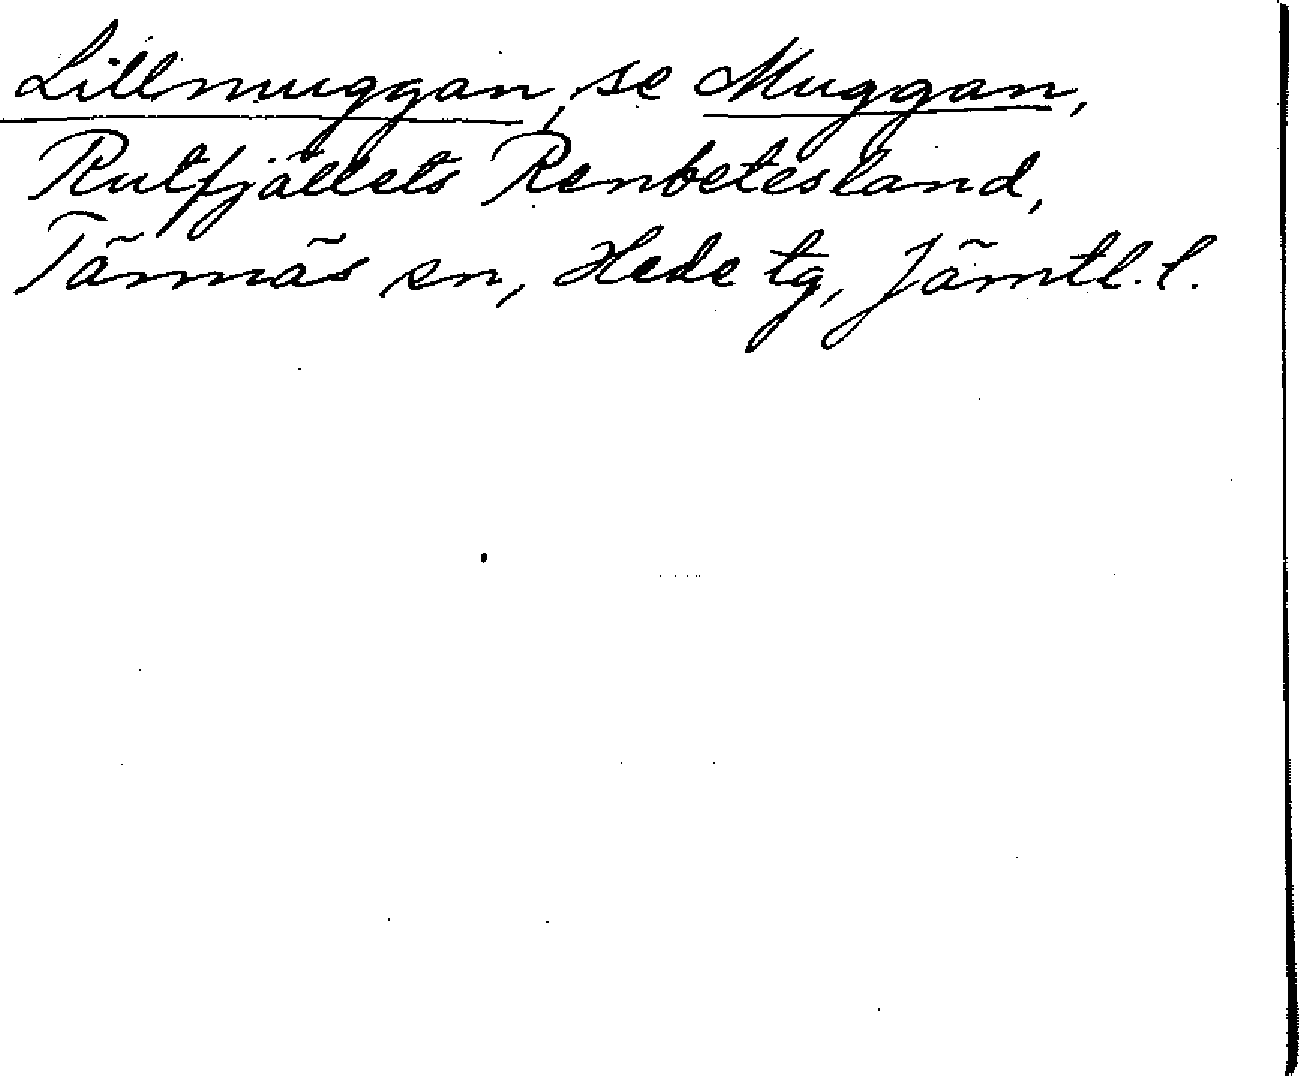 Lillmuggan, se Muggan,
Rutfjällets Renbetesland,
Tännäs sn, Hede tg, Jämtl. l.